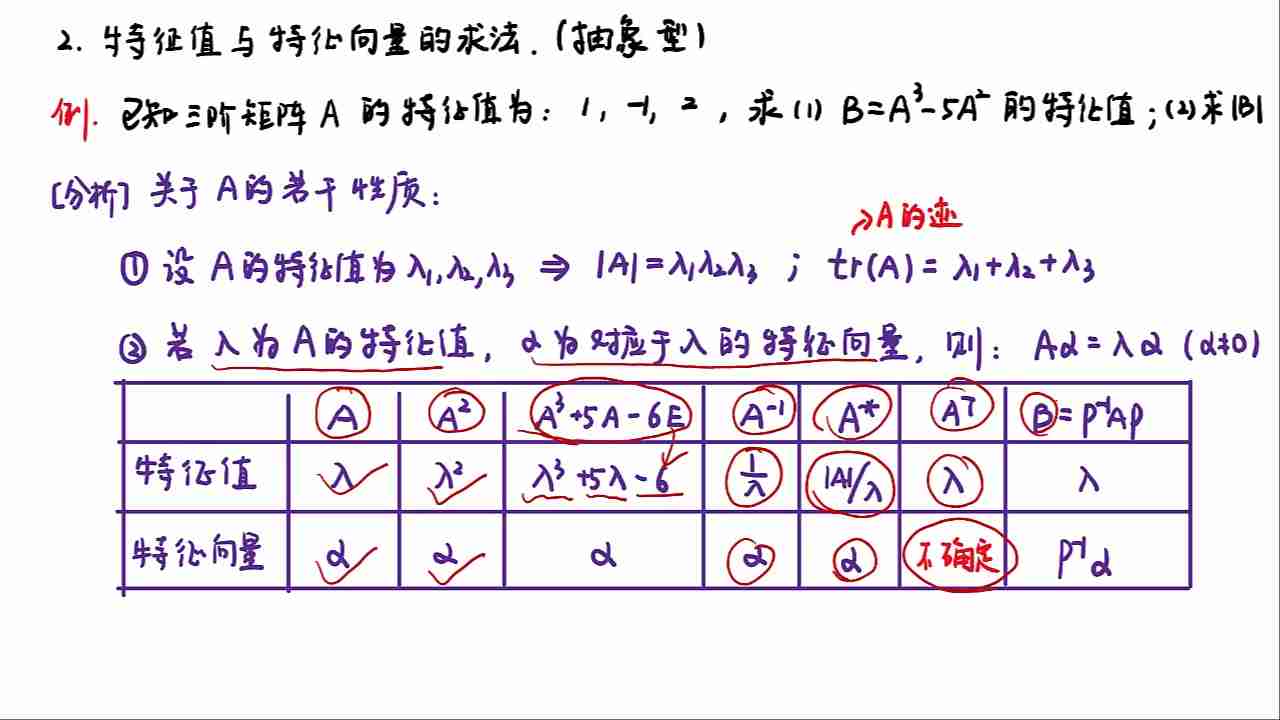 2. 特征值与特征向量的求法.(抽象型)
例. 已知三阶矩阵 A 的特征值为: 1, -1, 2, 求(1) B=A³-5A² 的特征值;(2)求|B|
[分析] 关于A的若干性质:
→A的迹
① 设 A的特征值为λ₁,λ₂,λ₃ ⇒ |A|=λ₁λ₂λ₃ ; tr(A)=λ₁+λ₂+λ₃
② 若 λ为A的特征值, α为对应于λ的特征向量, 则: Aα=λα (α≠0)
A A² A³+5A-6E A⁻¹ A* Aᵀ B=P⁻¹AP
特征值 λ λ² λ³+5λ-6 1/λ |A|/λ λ λ
特征向量 α α α α α 不确定 P⁻¹α